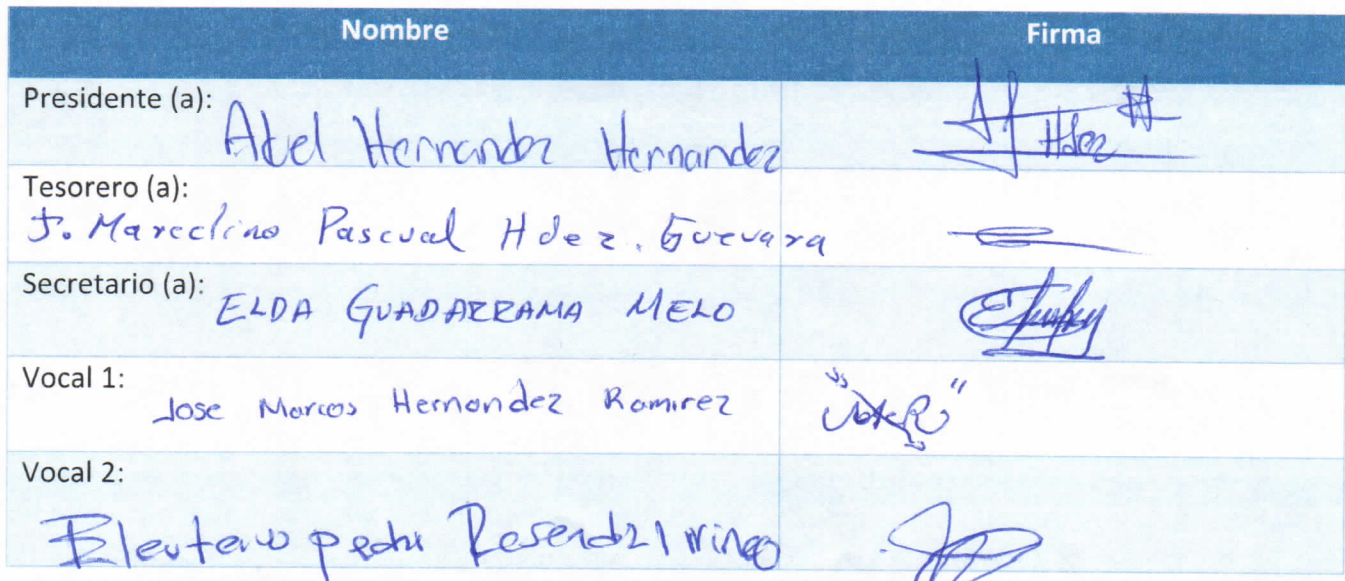 Nombre Firma
Presidente (a):
Abel Hernandez Hernandez Hdez
Tesorero (a):
J. Marcelino Pascual Hdez. Guevara
Secretario (a):
ELDA GUADARRAMA MELO
Vocal 1:
Jose Marcos Hernandez Ramirez
Vocal 2:
Eleuterio pedro